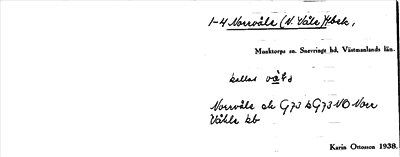 1-4 Norrvåla (N. Våla) Hbek,
Munktorps sn. Snevringe hd, Västmanlands län.
kallas våla
Norrvåla ch G73 b G73 NO Norr
Våhla kb
Karin Ottosson 1938.